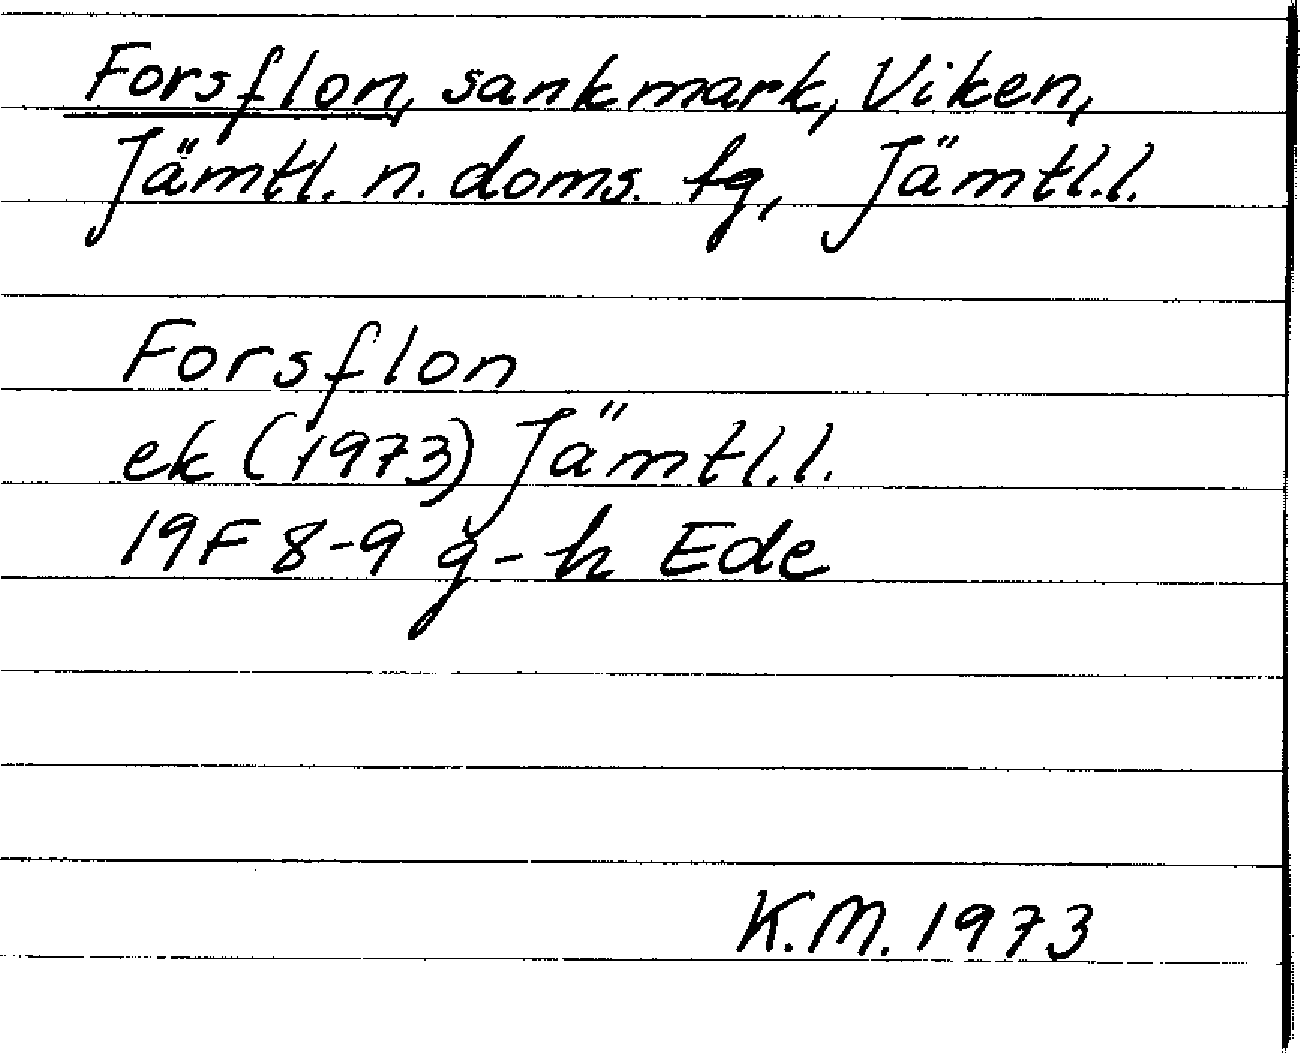 Forsflon, sankmark, Viken,
Jämtl. n. doms. tg, Jämtl.l.
Forsflon
ek (1973) Jämtl.l.
19F 8-9 g-h Ede
K.M. 1973